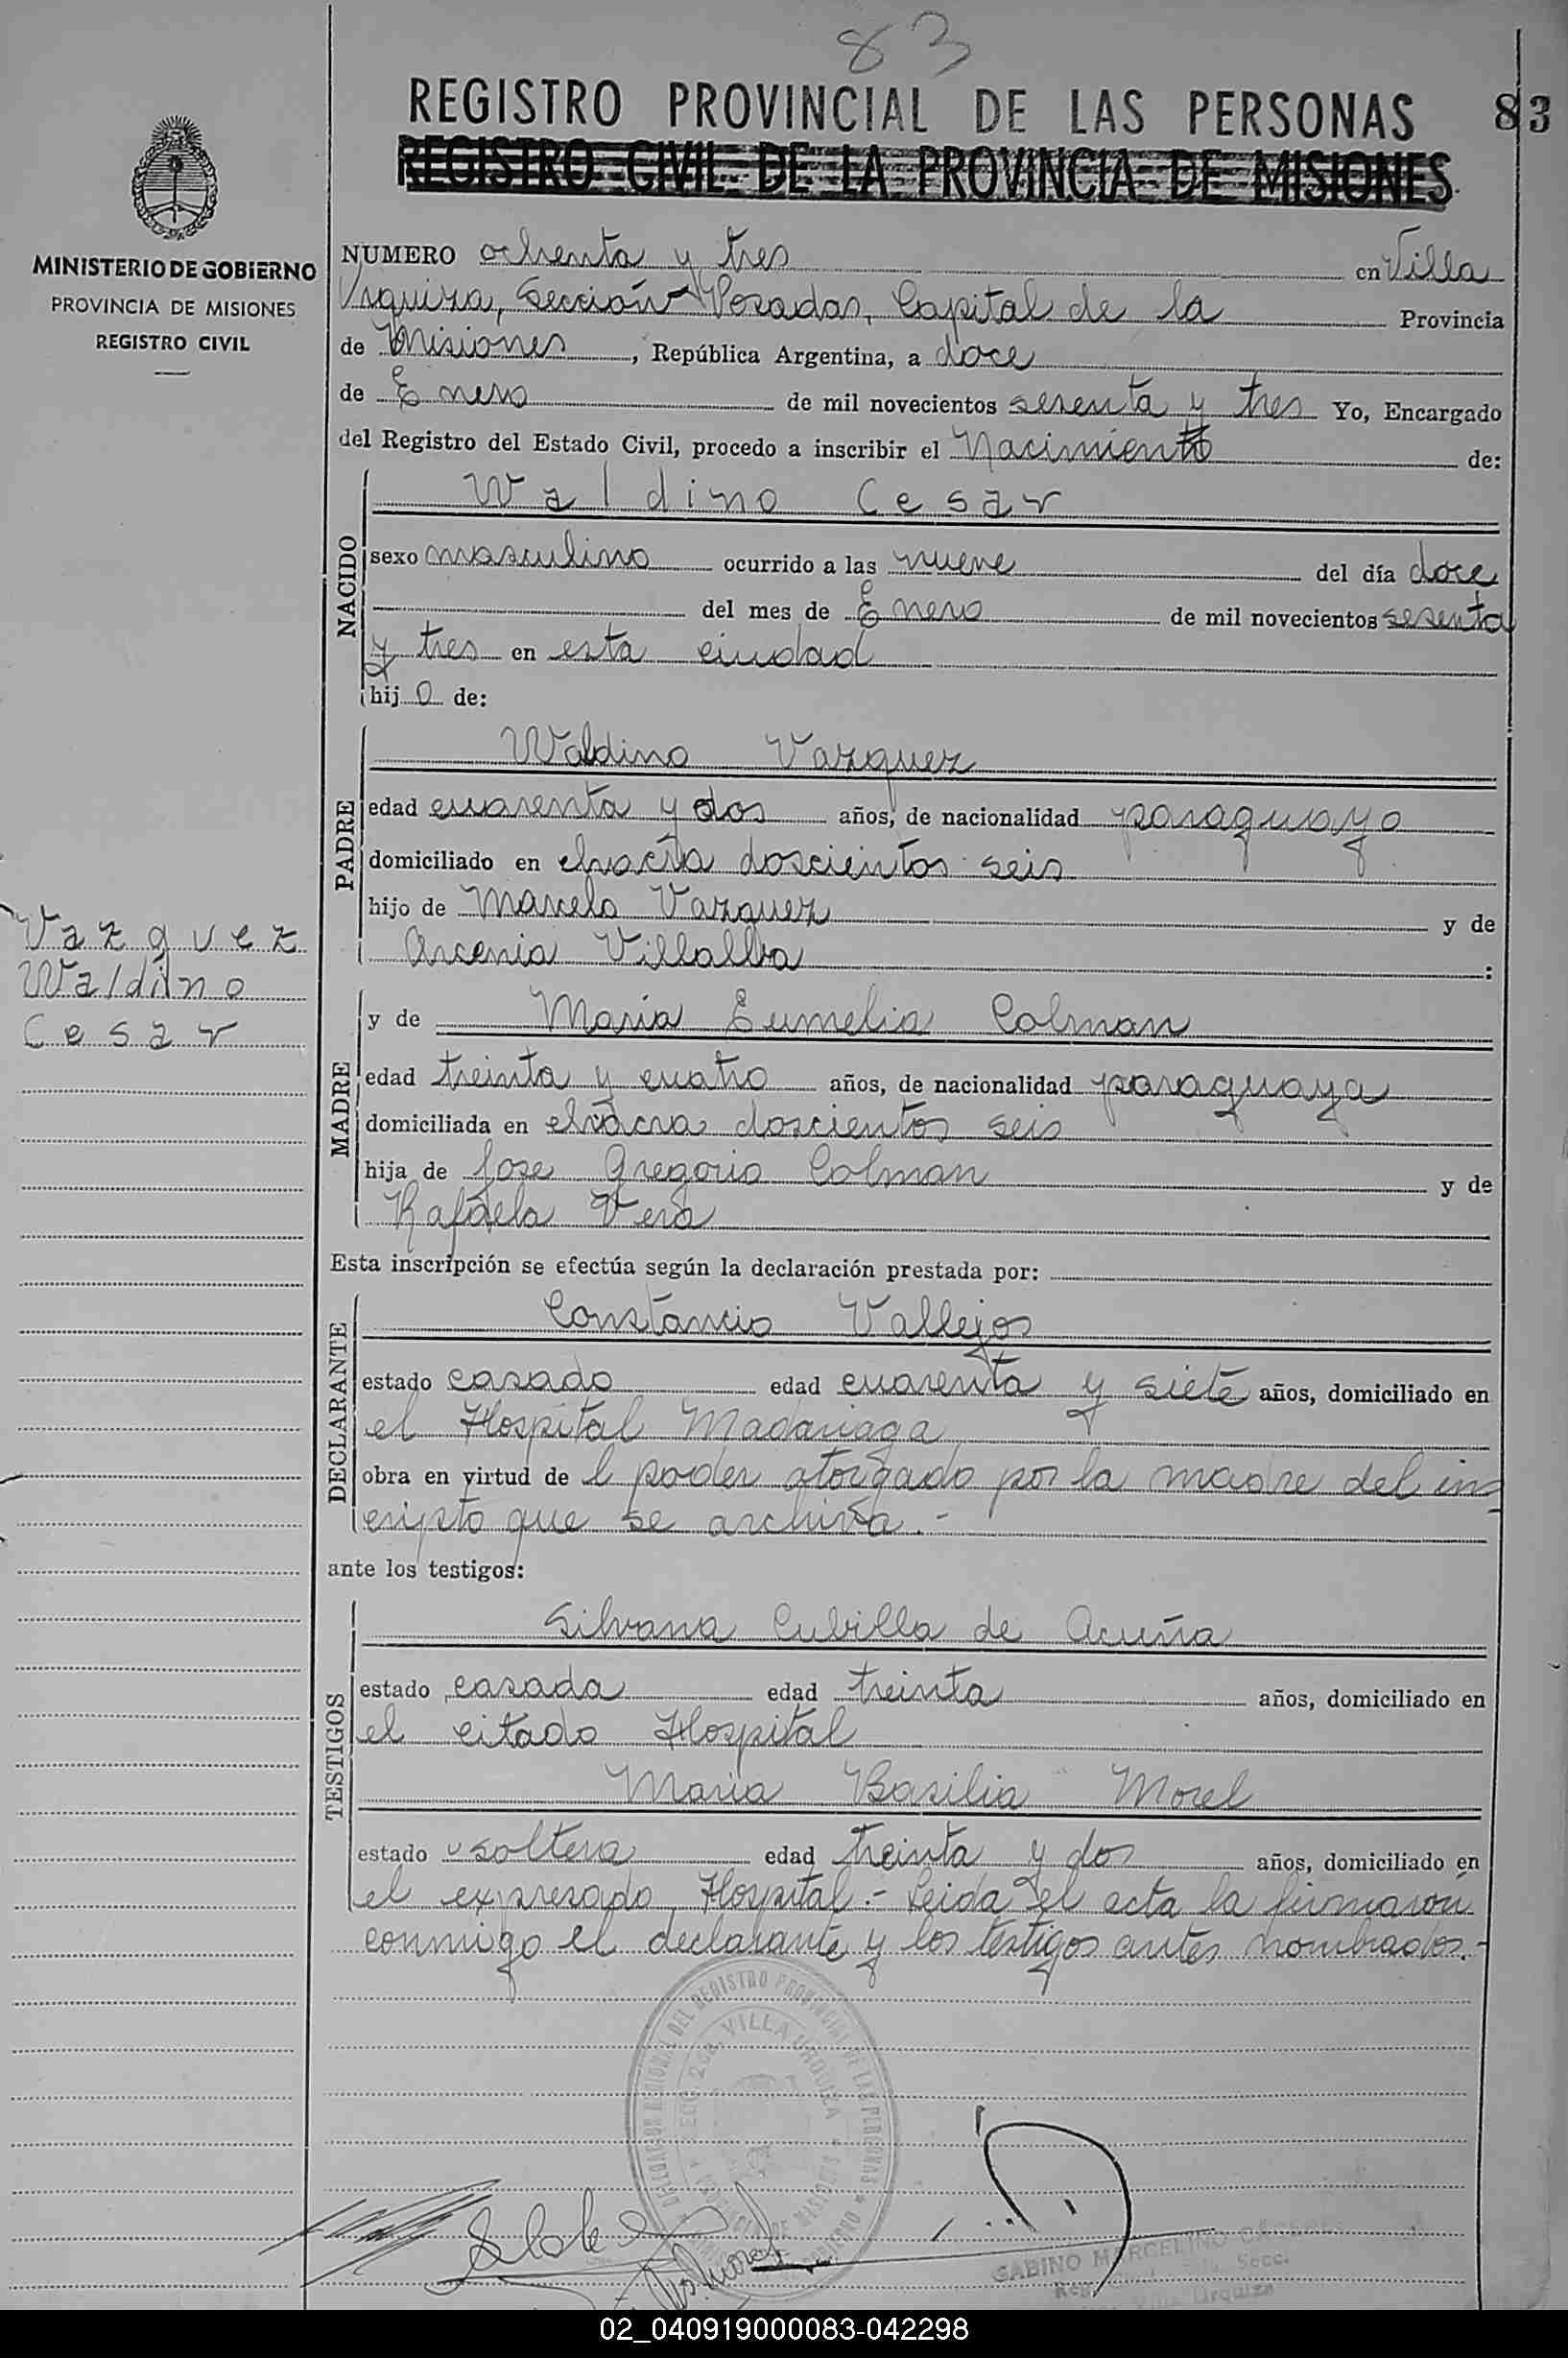 83
REGISTRO PROVINCIAL DE LAS PERSONAS 83
REGISTRO CIVIL DE LA PROVINCIA DE MISIONES
MINISTERIO DE GOBIERNO
PROVINCIA DE MISIONES
REGISTRO CIVIL
NUMERO ochenta y tres en Villa
Urquiza, Sección Posadas, Capital de la Provincia
de Misiones, República Argentina, a doce
de Enero de mil novecientos sesenta y tres Yo, Encargado
del Registro del Estado Civil, procedo a inscribir el Nacimiento de:
NACIDO
Waldino Cesar
sexo masculino ocurrido a las nueve del día doce
del mes de Enero de mil novecientos sesenta
y tres en esta ciudad
hijo de:
PADRE
Waldino Vazquez
edad cuarenta y dos años, de nacionalidad paraguayo
domiciliado en chacra doscientos seis
hijo de Marcelo Vazquez y de
Arcenia Villalba :
Vazquez
Waldino
Cesar
MADRE
y de Maria Eumelia Colman
edad treinta y cuatro años, de nacionalidad paraguaya
domiciliada en chacra doscientos seis
hija de Jose Gregorio Colman y de
Rafaela Vera
Esta inscripción se efectúa según la declaración prestada por:
DECLARANTE
Constancio Vallejos
estado casado edad cuarenta y siete años, domiciliado en
el Hospital Madariaga
obra en virtud de l poder otorgado por la madre del ins
cripto que se archiva.-
ante los testigos:
TESTIGOS
Silvana Cubilla de Acuña
estado casada edad treinta años, domiciliado en
el citado Hospital
Maria Basilia Morel
estado soltera edad treinta y dos años, domiciliado en
el expresado Hospital.- Leida el acta la firmaron
conmigo el declarante y los testigos antes nombrados.-
DELEGACION REGIONAL DEL REGISTRO PROVINCIAL DE LAS PERSONAS
VILLA URQUIZA
GABINO MARCELINO CACERES
Secc.
Villa Urquiza
02_040919000083-042298